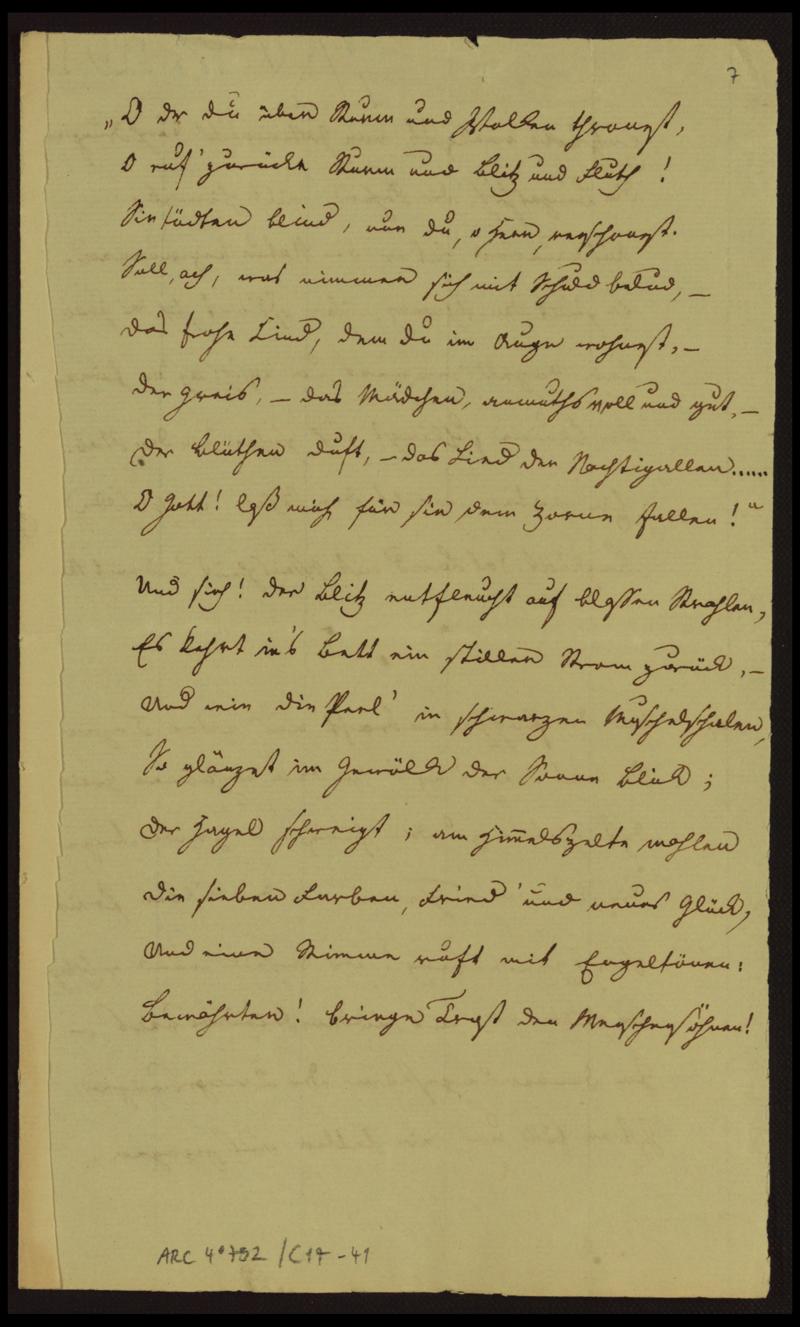 7
„O der du über Sturm und Wolken thronest,
O ruf' zurücke Sturm und Blitz und Fluth!
Sie tödten blind, nur du, o Herr, verschonest.
Soll, ach, was nimmer sich mit Schuld belud, –
Das frohe Kind, dem du im Auge wohnest, –
Der Greis, – das Mädchen, anmuthsvoll und gut, –
Der Blüthen Duft, – das Lied der Nachtigallen.....
O Gott! laß mich für sie dem Zorne fallen!“
Und sieh! der Blitz entfleucht auf blassen Strahlen,
Es kehrt in's Bett ein stiller Strom zurück, –
Und wie die Perl' in schwarzen Muschelschalen,
So glänzet im Gewölk der Sonne Blick;
Der Hagel schweigt; am Himmelszelte mahlen
Die sieben Farben, Fried' und neues Glück,
Und eine Stimme ruft mit Engeltönen:
Bewährter! bringe Trost den Menschensöhnen!
ARC 4°792 /C17-41